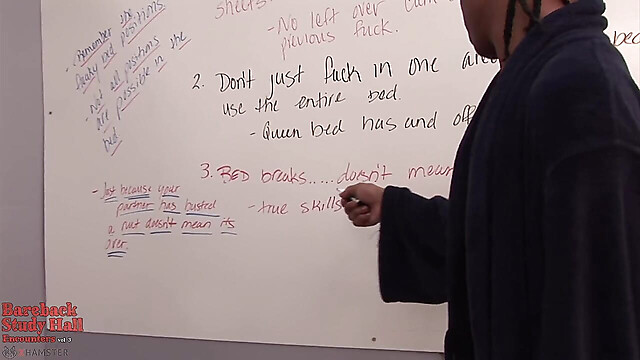 - Remember the
freaky bed positions
- Not all positions
are possible in the
bed
sheets.
- No left over cum
previous fuck.
2. Don't just fuck in one area
use the entire bed.
- Queen bed has and off
3. BED breaks..... doesn't mean
- true skills
- Just because your
partner has busted
a nut doesn't mean its
over.
Bareback
Study Hall
Encounters vol 3
HAMSTER